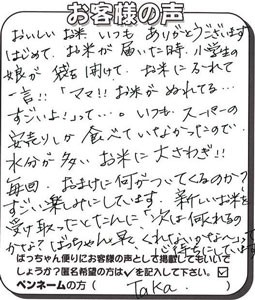 お客様の声
おいしいお米、いつもありがとうございます
はじめて、お米が届いた時、小学生の
娘が袋を開けて、お米にふれて
一言!!「ママ!!お米がぬれてる…
すごいよ!」って…。いつも、スーパーの
安売りしか食べていなかったので、
水分が多いお米に大さわぎ!!
毎回、おまけに何がついてくるのか?
すごい楽しみにしています。新しいお米を
受け取ったとたんに「次は何くれるの
かな?ばっちゃん早くくれないかな~」って
心待ちにしています
ばっちゃん便りにお客様の声として掲載してもいいで
しょうか?匿名希望の方は✓を記入して下さい。☑
ペンネームの方( Taka. )